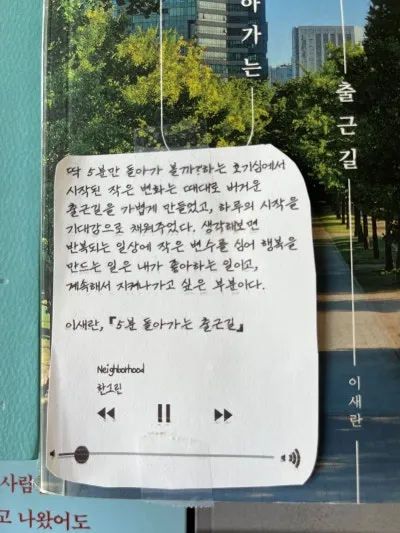 아가는
출근길
이새란
딱 5분만 돌아가 볼까?하는 호기심에서
시작된 작은 변화는 때때로 버거운
출근길을 가볍게 만들었고, 하루의 시작을
기대감으로 채워주었다. 생각해보면
반복되는 일상에 작은 변수를 심어 행복을
만드는 일은 내가 좋아하는 일이고,
계속해서 지켜나가고 싶은 부분이다.
이새란, 『5분 돌아가는 출근길』
Neighborhood
한그린
사람
고 나왔어도